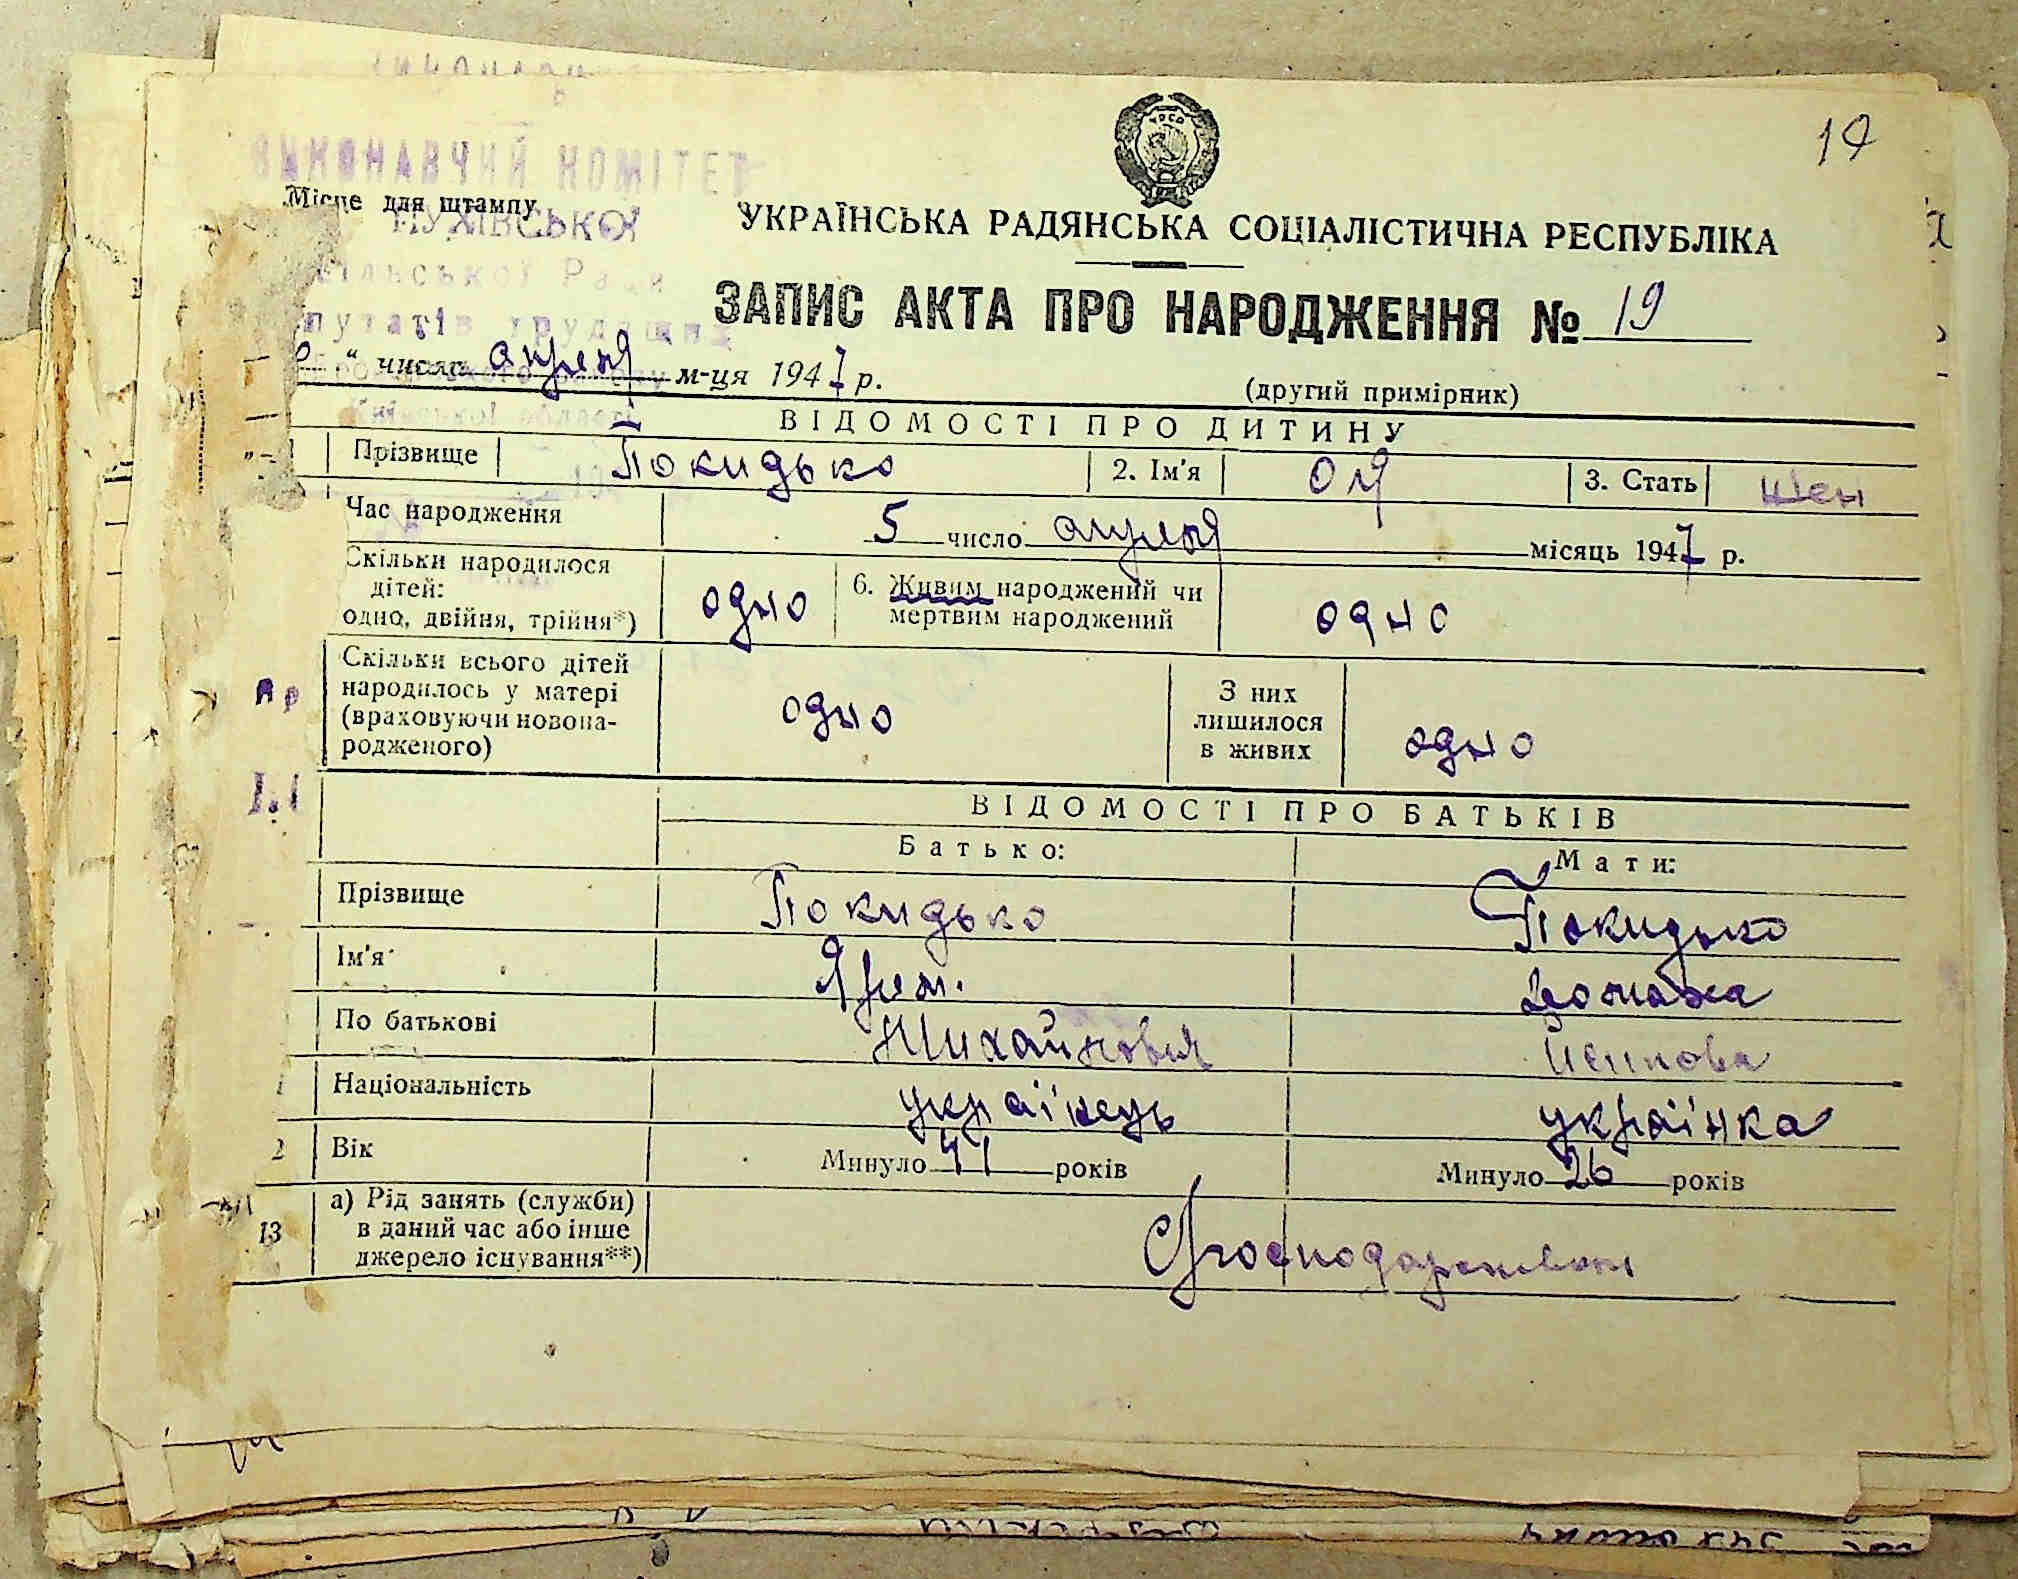 19
ВИКОНАВЧИЙ КОМІТЕТ
Місце для штампу
ПУХІВСЬКОЇ
УКРАЇНСЬКА РАДЯНСЬКА СОЦІАЛІСТИЧНА РЕСПУБЛІКА
сільської Ради
ЗАПИС АКТА ПРО НАРОДЖЕННЯ № 19
депутатів трудящих
" числа апреля м-ця 1947 р.
(другий примірник)
Київської області
ВІДОМОСТІ ПРО ДИТИНУ
Прізвище Покидько 2. Ім'я Оля 3. Стать жен
Час народження 5 число апреля місяць 1947 р.
Скільки народилося дітей:
одно, двійня, трійня*) одно
6. Живим народжений чи
мертвим народжений одно
Скільки всього дітей
народилось у матері
(враховуючи новона-
родженого) одно
З них
лишилося
в живих одно
ВІДОМОСТІ ПРО БАТЬКІВ
Батько: Мати:
Прізвище Покидько Покидько
Ім'я Ярем. Домаха
По батькові
Національність українець українка
2 Вік Минуло 41 років Минуло 26 років
13 а) Рід занять (служби)
в даний час або інше
джерело існування**)